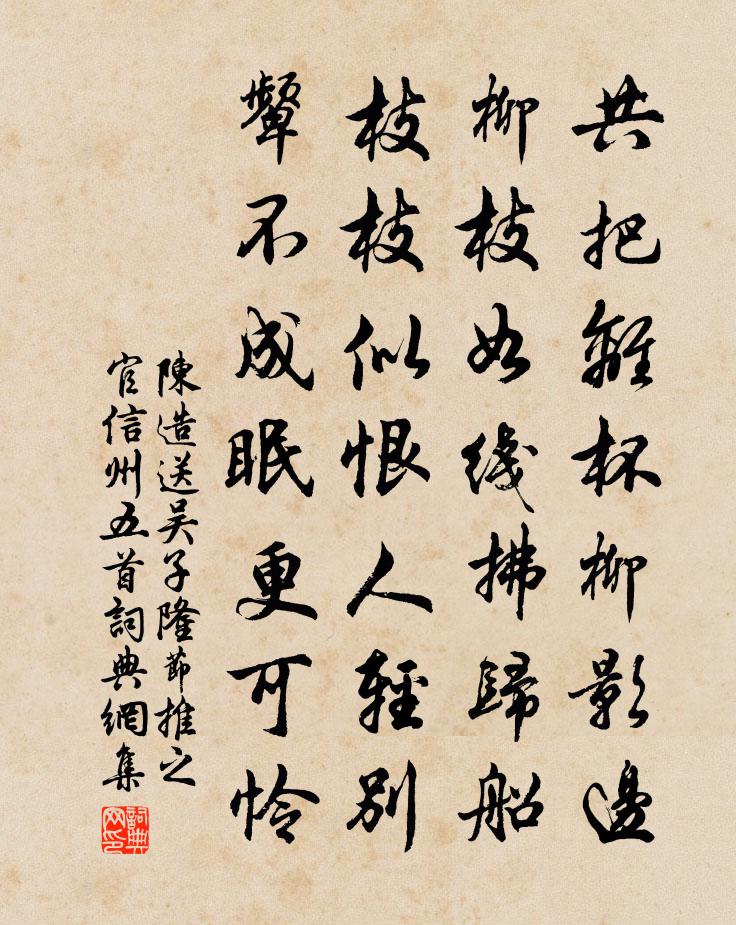 共把離杯柳影邊
柳枝如綫拂歸船
枝枝似恨人輕別
顰不成眠更可怜
陳造送吳子隆節推之
官信州五首詞典網集
詞典网印